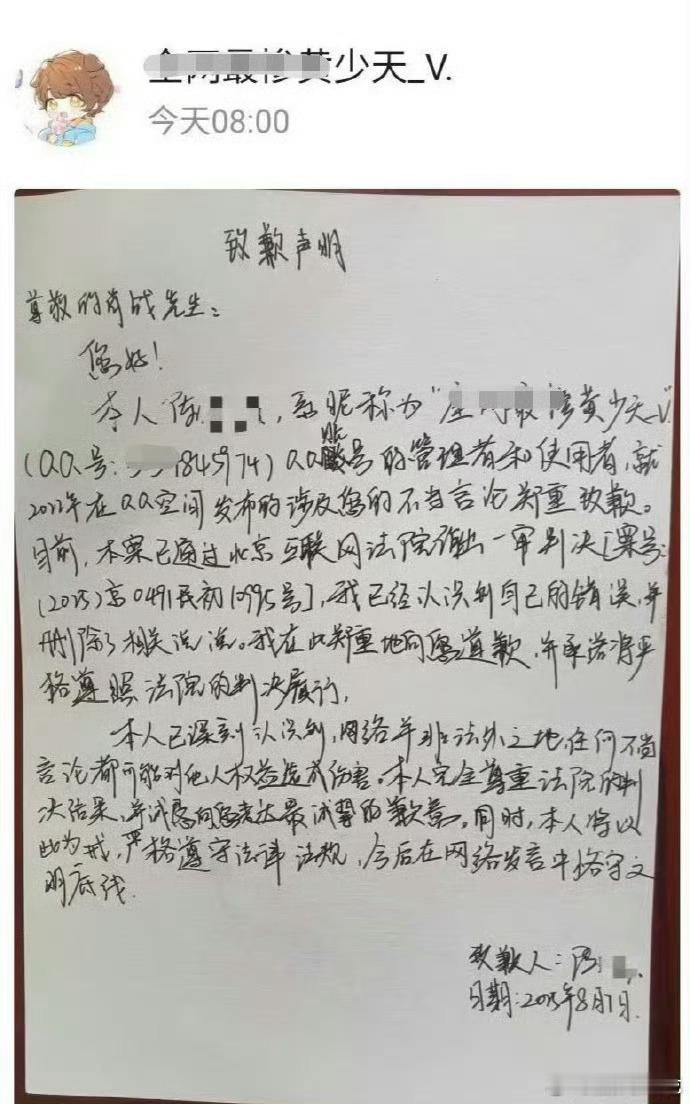 全网最惨黄少天_V.
今天08:00
致歉声明
尊敬的肖战先生：
您好！
本人陈，系昵称为"全网最惨黄少天_V."
(QQ号:1845974)QQ账号的管理者和使用者,就
2022年在QQ空间发布的涉及您的不当言论郑重致歉。
目前,本案已通过北京互联网法院作出一审判决[案号:
(2025)京0491民初10995号],我已经认识到自己的错误,并
删除了相关说说。我在此郑重地向您道歉,并承诺将严
格遵照法院的判决履行,
本人已深刻认识到,网络并非法外之地,任何不当
言论都可能对他人权益造成伤害。本人完全尊重法院的判
决结果,并诚向您表达最诚挚的歉意。同时,本人将以
此为戒,严格遵守法律法规,今后在网络发言中恪守文
明底线.
致歉人:陈
日期:2025年8月1日.